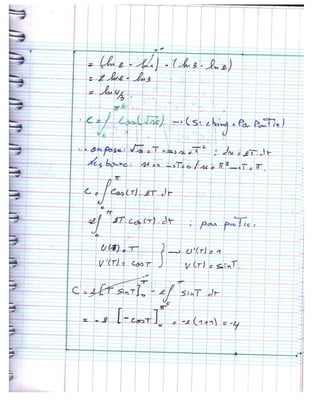 = (ln 2 - ln 1) - (ln 3 - ln 2)
= 2 ln 2 - ln 3
= ln 4/3
C = ∫ Cos(√x) → (S. chang + Par Partie)
on pose √x = T → x = T² ; dx = 2T.dT
les bornes: x=0 → T=0 / x=π² → T=π
C = ∫₀^π Cos(T). 2T.dT
2∫₀^π 2T. Cos(T). dT ; par partie:
U(T) = T → U'(T) = 1
V'(T) = CosT V(T) = SinT
C = 2[T SinT]₀^π - 2∫₀^π SinT. dT
= -2 [-CosT]₀^π = -2(1+1) = -4